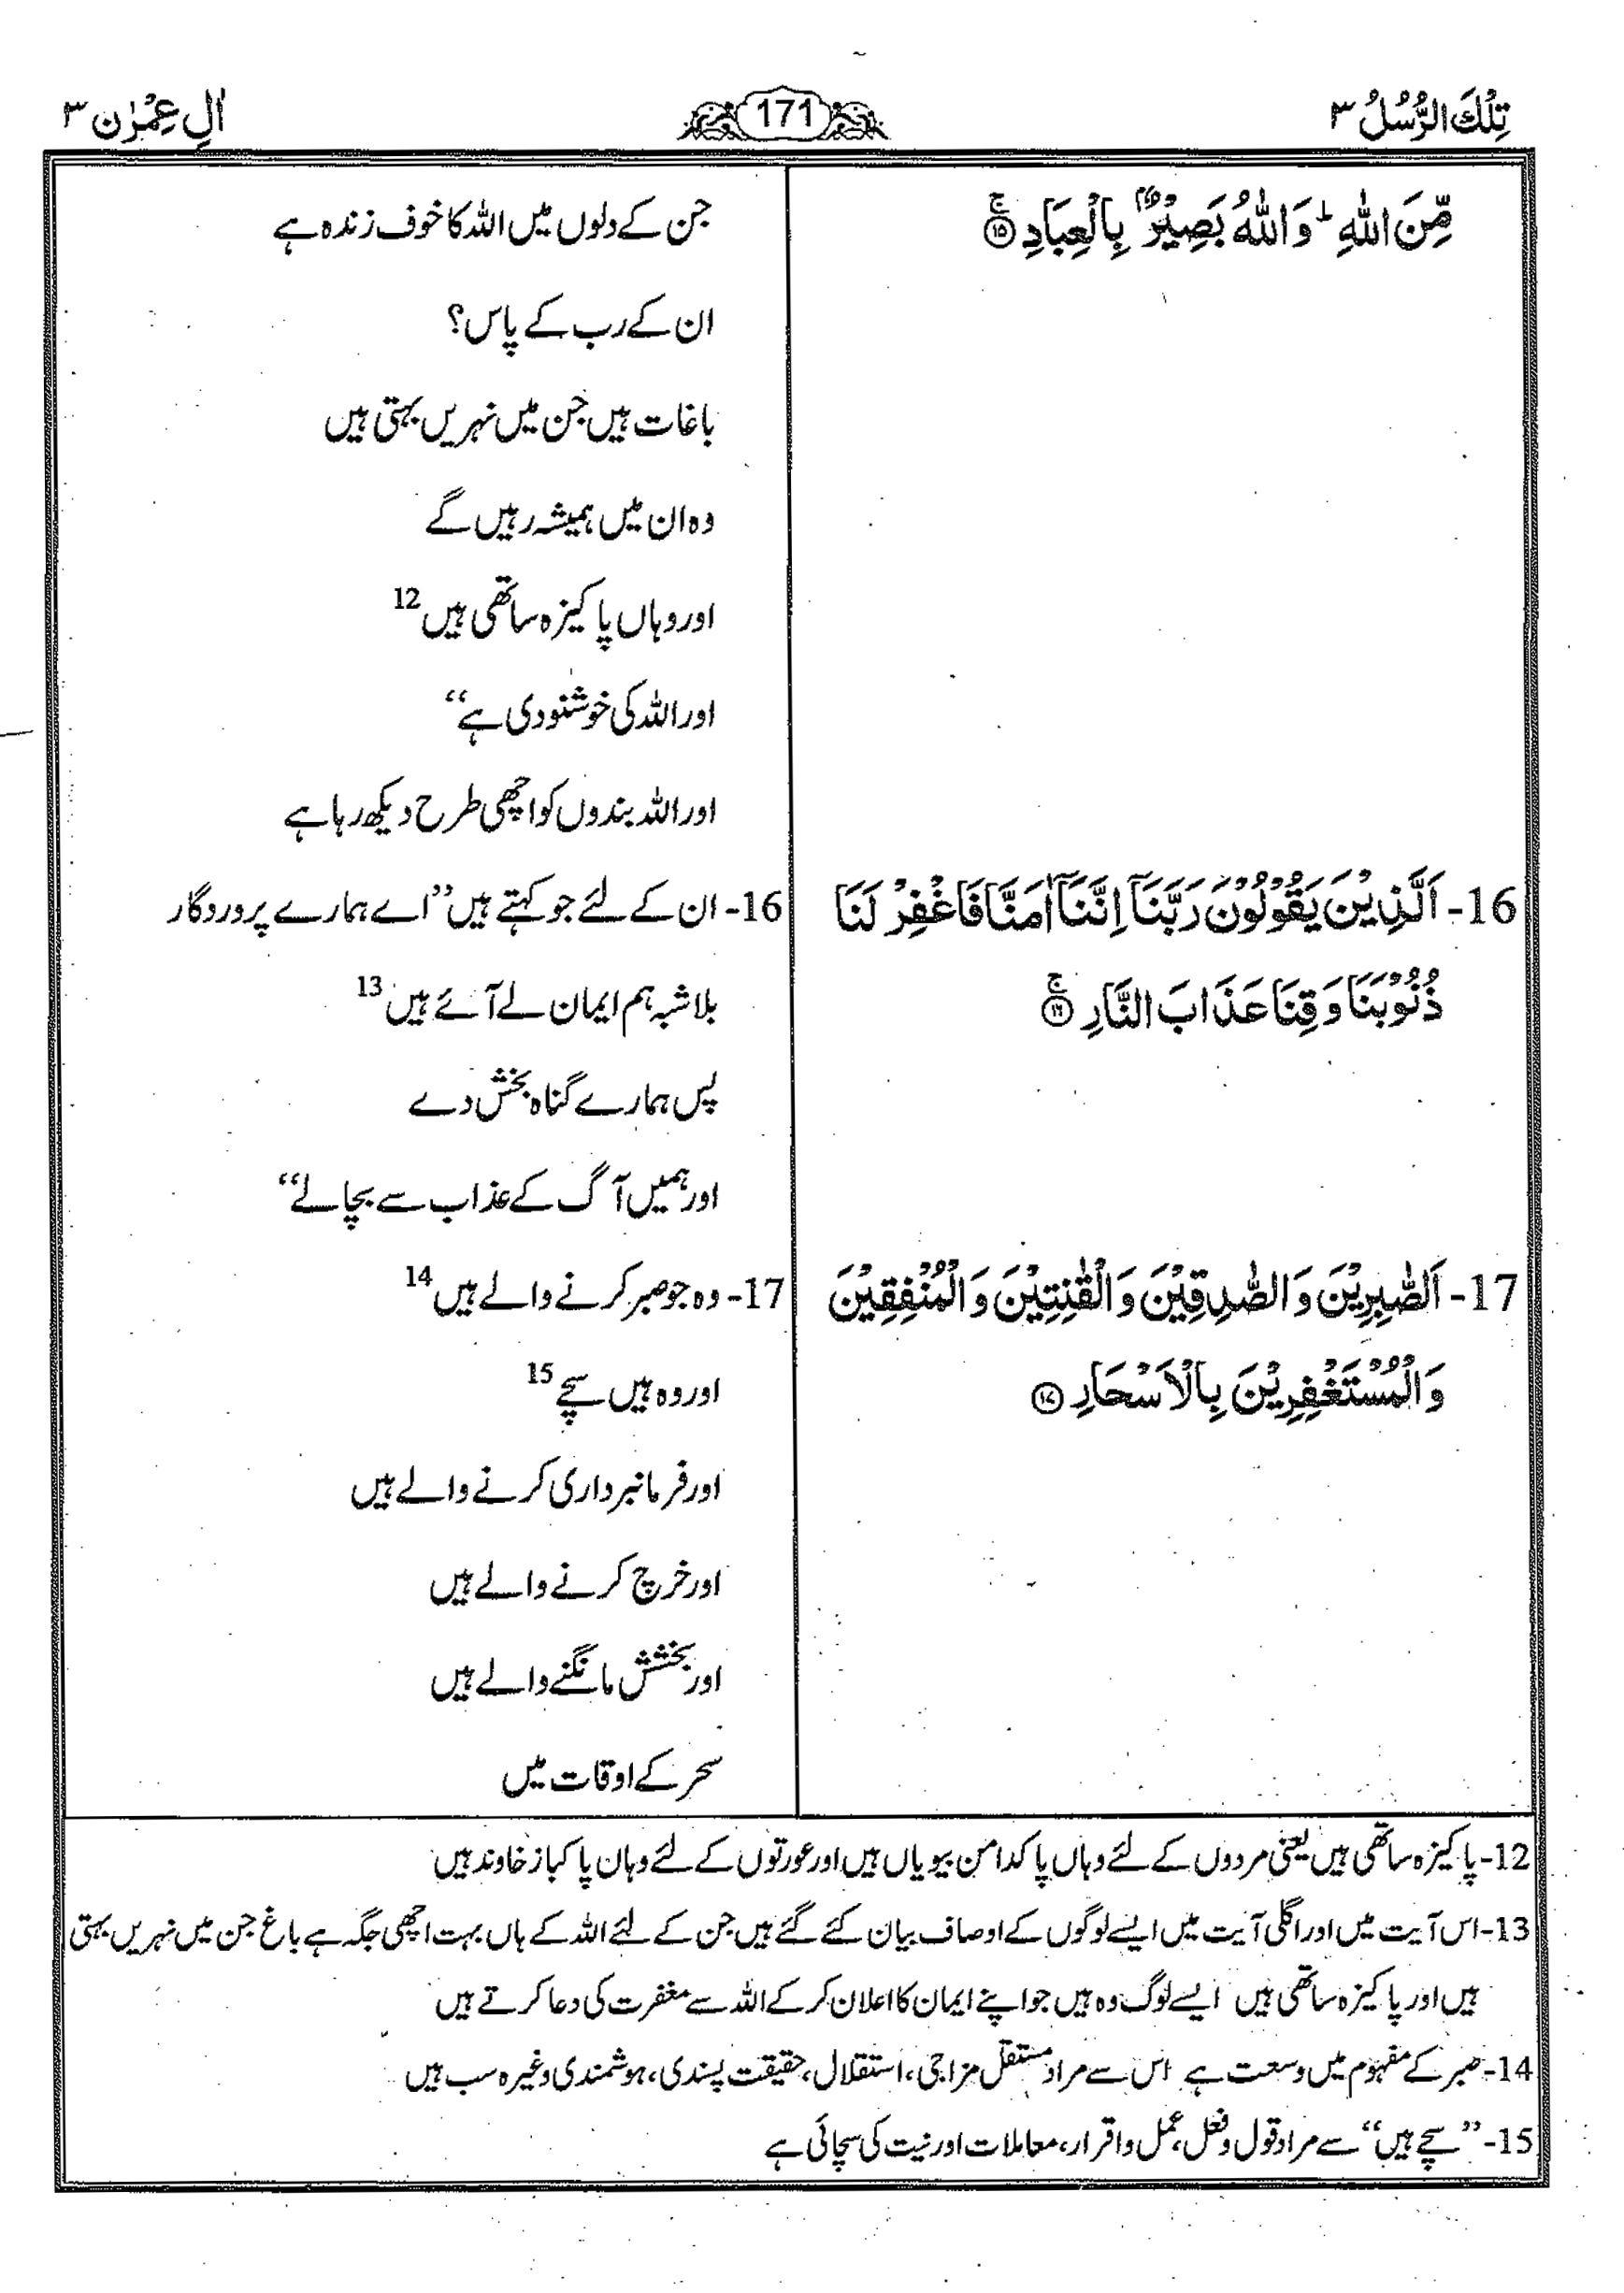 تِلْكَ الرُّسُلُ ٣
171
اٰلِ عِمْرٰن ٣
مِّنَ اللّٰهِ ؕ وَاللّٰهُ بَصِيْرٌۢ بِالْعِبَادِ ۚ ١٥
جن کے دلوں میں اللہ کا خوف زندہ ہے
ان کے رب کے پاس؟
باغات ہیں جن میں نہریں بہتی ہیں
وہ ان میں ہمیشہ رہیں گے
اور وہاں پاکیزہ ساتھی ہیں 12
اور اللہ کی خوشنودی ہے‘‘
اور اللہ بندوں کو اچھی طرح دیکھ رہا ہے
16- اَلَّذِيْنَ يَقُوْلُوْنَ رَبَّنَاۤ اِنَّنَاۤ اٰمَنَّا فَاغْفِرْ لَنَا
ذُنُوْبَنَا وَقِنَا عَذَابَ النَّارِ ۚ ١٦
16- ان کے لئے جو کہتے ہیں ’’اے ہمارے پروردگار
بلاشبہ ہم ایمان لے آئے ہیں 13
پس ہمارے گناہ بخش دے
اور ہمیں آگ کے عذاب سے بچا لے‘‘
17- اَلصّٰبِرِيْنَ وَالصّٰدِقِيْنَ وَالْقٰنِتِيْنَ وَالْمُنْفِقِيْنَ
وَالْمُسْتَغْفِرِيْنَ بِالْاَسْحَارِ ١٧
17- وہ جو صبر کرنے والے ہیں 14
اور وہ ہیں سچے 15
اور فرمانبرداری کرنے والے ہیں
اور خرچ کرنے والے ہیں
اور بخشش مانگنے والے ہیں
سحر کے اوقات میں
12- پاکیزہ ساتھی ہیں یعنی مردوں کے لئے وہاں پاکدامن بیویاں ہیں اور عورتوں کے لئے وہان پاکباز خاوند ہیں
13- اس آیت میں اور اگلی آیت میں ایسے لوگوں کے اوصاف بیان کئے گئے ہیں جن کے لئے اللہ کے ہاں بہت اچھی جگہ ہے باغ جن میں نہریں بہتی
ہیں اور پاکیزہ ساتھی ہیں ایسے لوگ وہ ہیں جو اپنے ایمان کا اعلان کر کے اللہ سے مغفرت کی دعا کرتے ہیں
14- صبر کے مفہوم میں وسعت ہے اس سے مراد مستقل مزاجی، استقلال، حقیقت پسندی، ہوشمندی وغیرہ سب ہیں
15- ’’سچے ہیں‘‘ سے مراد قول و فعل، عمل و اقرار، معاملات اور نیت کی سچائی ہے